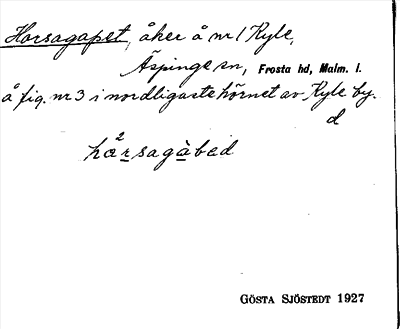 Horsagapet, åker å nr 1 Kyle,
Äspinge sn, Frosta hd, Malm. l.
å fig. nr 3 i nordligaste hörnet av Kyle by.
d
2
hårsagàbed
GÖSTA SJÖSTEDT 1927